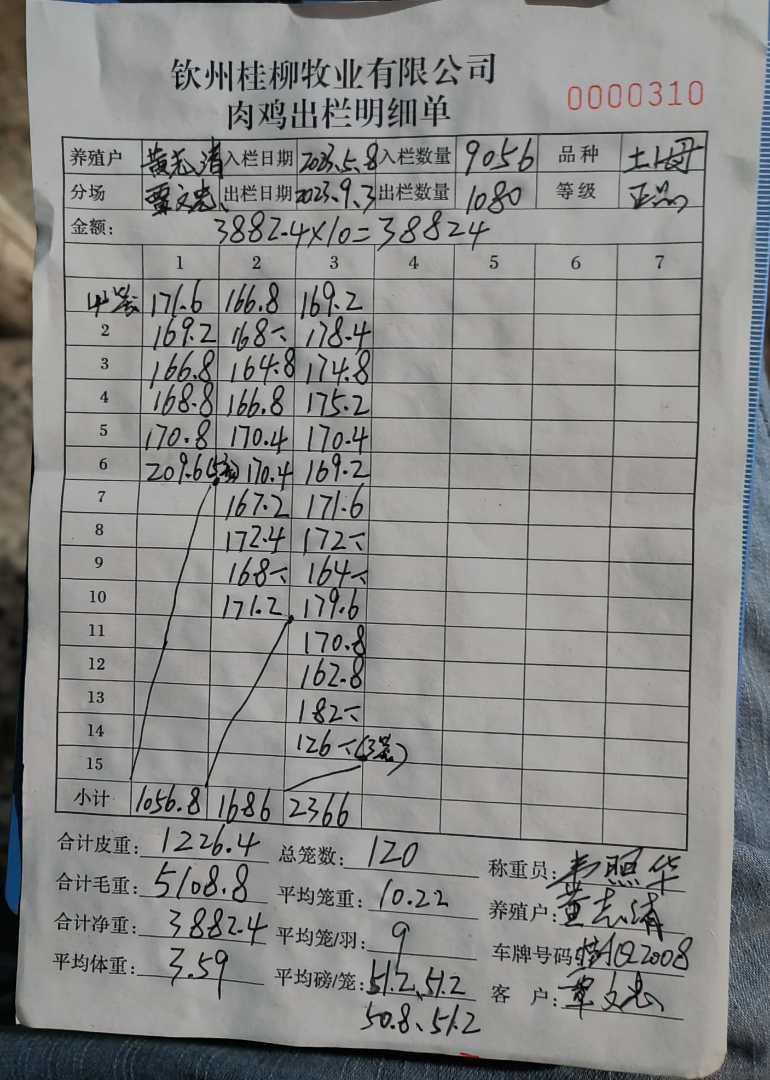 钦州桂柳牧业有限公司
肉鸡出栏明细单 0000310
养殖户 黄志清 入栏日期 2023.5.8 入栏数量 9056 品种 土2母
分场 覃文忠 出栏日期 2023.9.3 出栏数量 1080 等级 正品
金额: 3882.4×10=38824
1 2 3 4 5 6 7
171.6 166.8 169.2
2 169.2 168.- 178.4
3 166.8 164.8 174.8
4 168.8 166.8 175.2
5 170.8 170.4 170.4
6 209.6(5笼) 170.4 169.2
7 167.2 171.6
8 172.4 172.-
9 168.- 164.-
10 171.2 179.6
11 170.8
12 162.8
13 182.-
14 126.-(3笼)
15
小计 1056.8 1686 2366
合计皮重: 1226.4 总笼数: 120 称重员: 韦照华
合计毛重: 5108.8 平均笼重: 10.22 养殖户: 黄志清
合计净重: 3882.4 平均笼/羽: 9 车牌号码 2008
平均体重: 3.59 平均磅/笼: 51.2、51.2 客户: 覃文忠
50.8、51.2